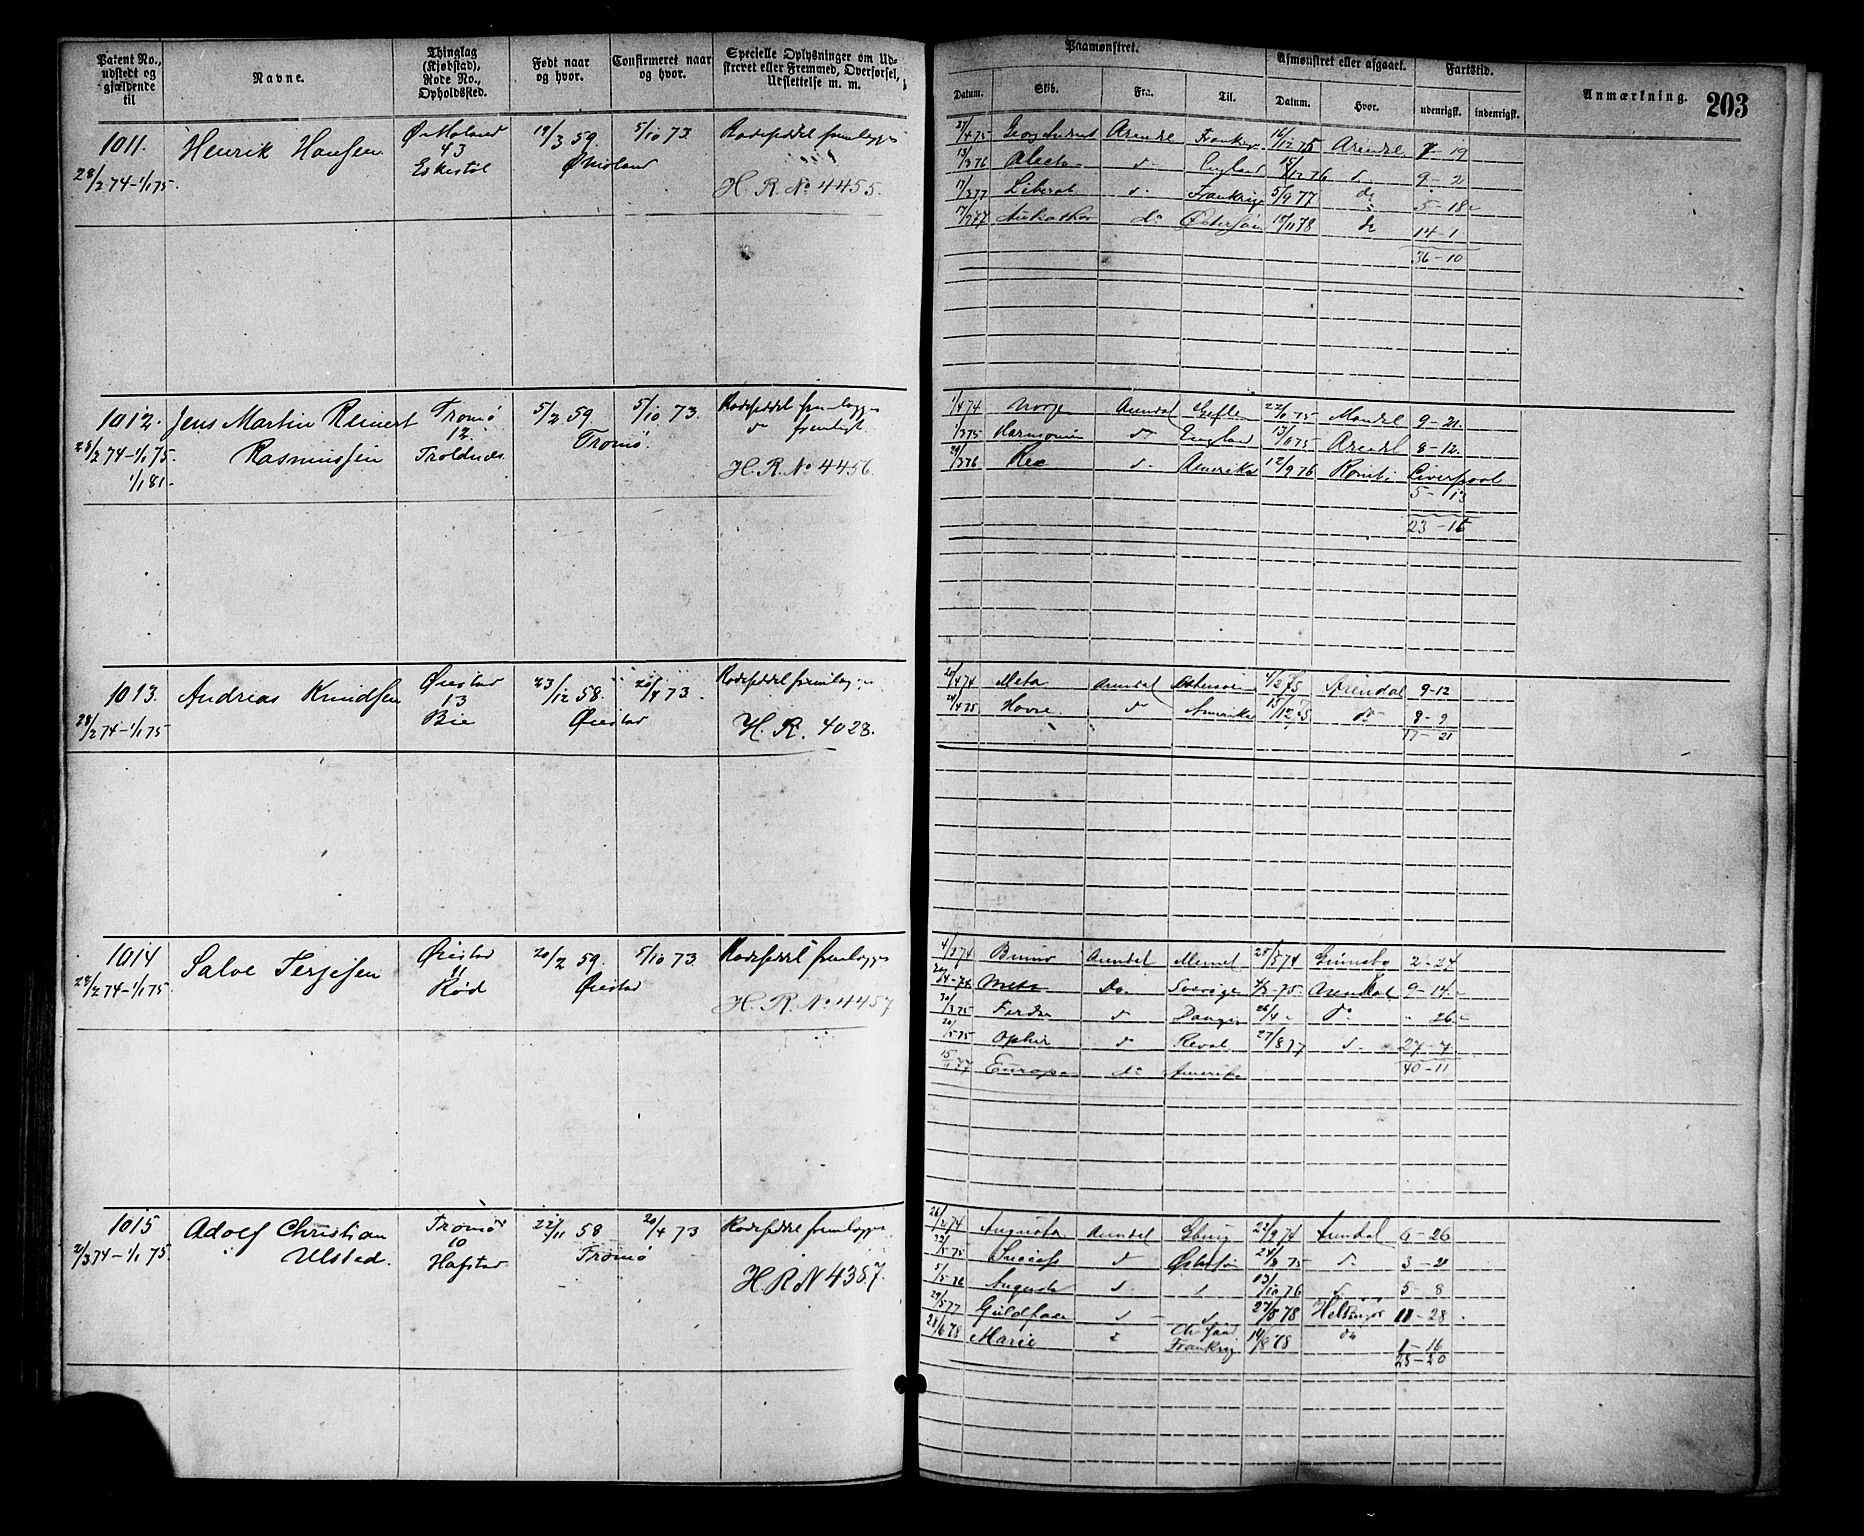 Patent No., udstedt og gjældende til
Navne.
Thinglag (Kjøbstad), Rode No., Opholdssted.
Født naar og hvor.
Confirmeret naar og hvor.
Specielle Oplysninger om Udstrevet eller Fremmed, Overførsel, Urslettelse m. m.
Paamønstret.
Datum.
Skib.
Fra.
Til.
Afmønstret eller afgaaet.
Datum.
Hvor.
Fartstid.
udenrigsk.
indenrigsk.
Anmærkning.
203
1011.
28/2 74-1/1 75.
Henrik Hansen
43
19/3 59.
5/10 73
Rodeseddel fremlagges
H. R. No 4455.
27/4 75 Arendal 16/12 75 Arendal 7-19
13/3 76 Alecto d. England 15/12 76 d. 9-2
17/3 77 Liberal d. Frankrig 5/9 77 do 5-18
17/9 77 do Østersøen 15/11 78 do 14-1
36-10
1012.
28/2 74-1/1 75.
1/1 81.
Jens Martin Reinert
Rasmussen
Tromø
12.
Troldnæs
5/2 59
5/10 73.
Tromø
Rodeseddel fremlagges
do fremligt.
H. R. No 4456.
1/4 74 Norge Arendal Gefle Mandal 9-21
1/3 75 Harmonien do England Arendal 8-12.
29/3 76 Rex d. Amerika 12/9 76 Rømt i Liverpool
5-13
23-16
1013.
28/2 74-1/1 75
Andreas Knudsen
Øiestad
13
Bie
23/12 58.
20/4 73.
Øiestad
Rodeseddel fremlagges
H. R. 4028.
20/4 74 Meta Arendal Østersøen 4/2 75 Arendal 9-12
24/4 75 Hovre do Amerika 15/12 75 do 8-9
17-21
1014
28/2 74-1/1 75
Salve Terjesen
Øiestad
11
Rød
20/2 59.
5/10 73.
Øiestad
Rodeseddel fremlagges
H. R. No 4457
4/3 74 Bruno Arendal Memel 25/5 74 2-24
20/4-74 Meta Do Sverige 4/2-75 Arendal 9-14
30/3 75 d 26/4 do 26
20/5 75 Ophir do Reval 27/8 77 d. 27-7
40-11
15/11 77 Europa do Amerika
1015
2/3 74-1/1 75.
Adolf Christian
Ulsted.
Tromø
10
Hafstad
22/11 58
20/4 73
Tromø
Rodeseddel fremlagges
H R N 4387.
26/2 74 Augusta Arendal 22/9 74 Arendal 6-26
22/5 75 Succes d Østersø 24/8 75 d. 3-2
5/5 76 Augusta d. 13/10 76 d. 5-8
29/5 77 Guldfaxe 27/5 78 Helsingør 11-28
28/6 78 Marie Frankrig 14/8 78 do 1-16
25-20